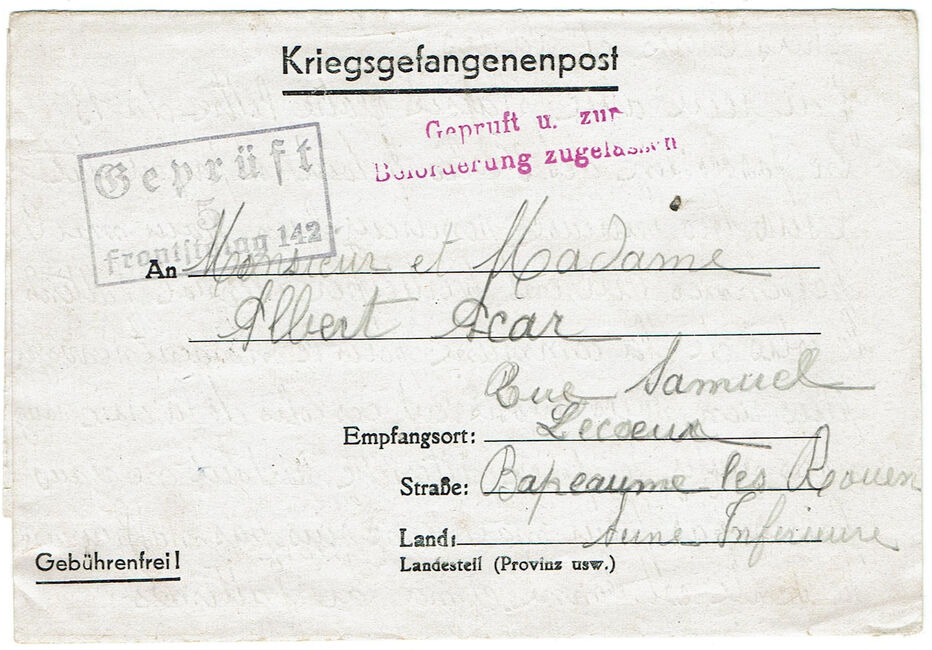 Kriegsgefangenenpost
Geprüft u. zur
Beförderung zugelassen
Geprüft
5
Frontstalag 142
An Monsieur et Madame
Albert Acar
Rue Samuel
Empfangsort: Lecoeur
Straße: Bapeaume-les Rouen
Land: Inférieure
Landesteil (Provinz usw.)
Gebührenfrei!